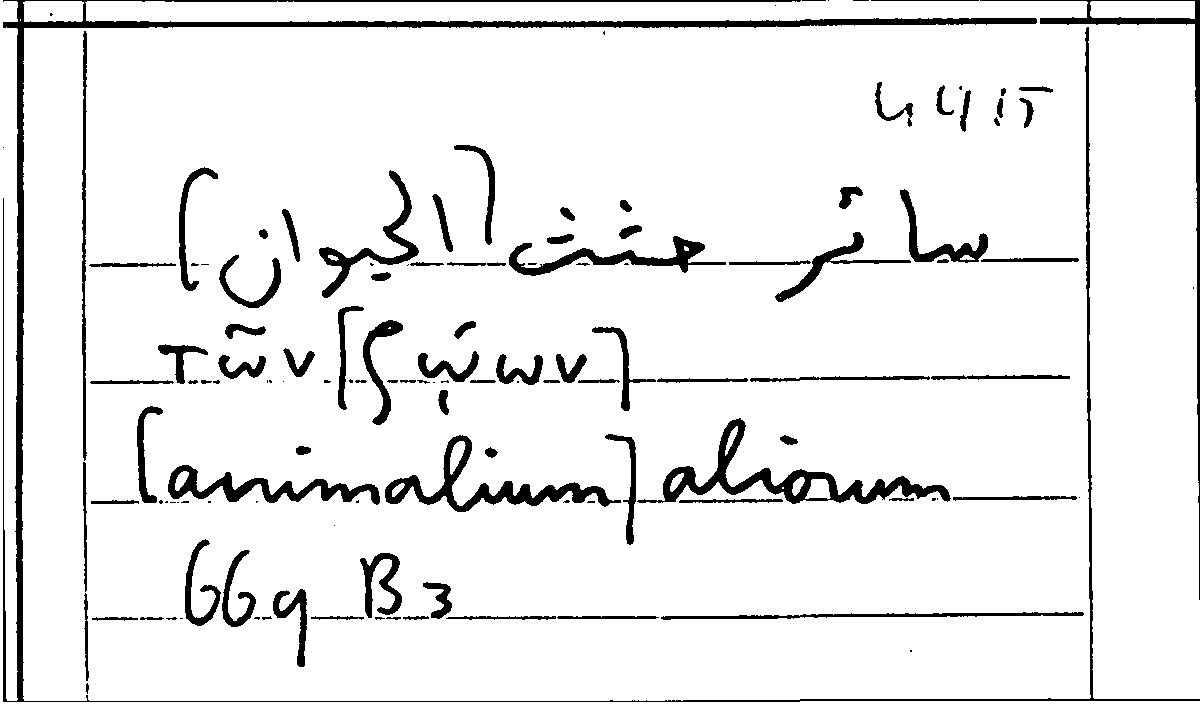 سائر جثث [الحيوان]
τῶν [ζῴων]
[animalium] aliorum
669 B3